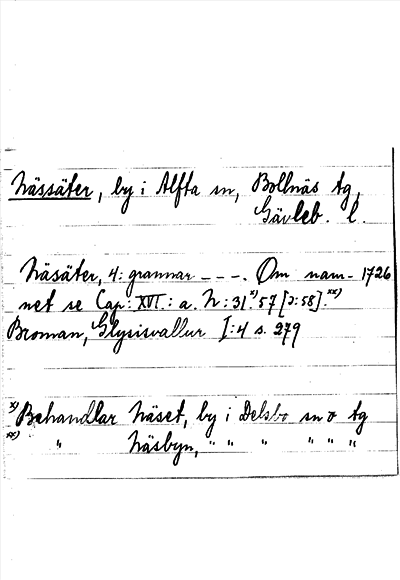 Nässäter, by i Alfta sn, Bollnäs tg,
Gävleb. l.
Näsäter, 4: grannar - - -. Om nam- 1726
net se Cap: XVI.: a. N: 31 x) 57 [ɔ: 58]. xx)
Broman, Glysisvallur I: 4 s. 279
x) Behandlar Näset, by i Delsbo sn o tg
xx) " Näsbyn, " " " " " "